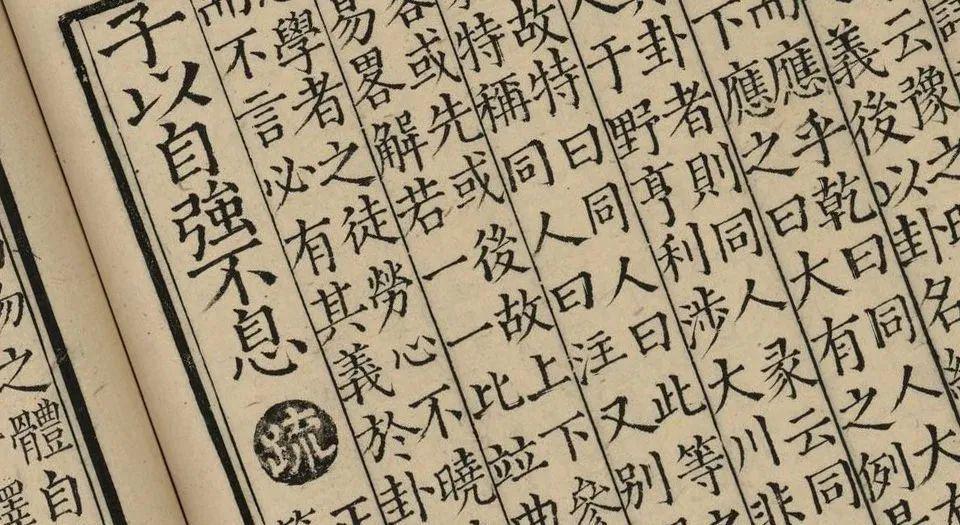 云豫之
義後以卦名
而應乎乾曰同人大
下應之曰大有之例
卦者則同人彖云同
人于野亨利涉大川非
故特曰同人曰此等
特稱同人曰注又別
或先或後故上下參
易畧解若一一比並曲
學者之徒勞心不曉
而不言必有其義於卦
子以自強不息 疏
勿之體自